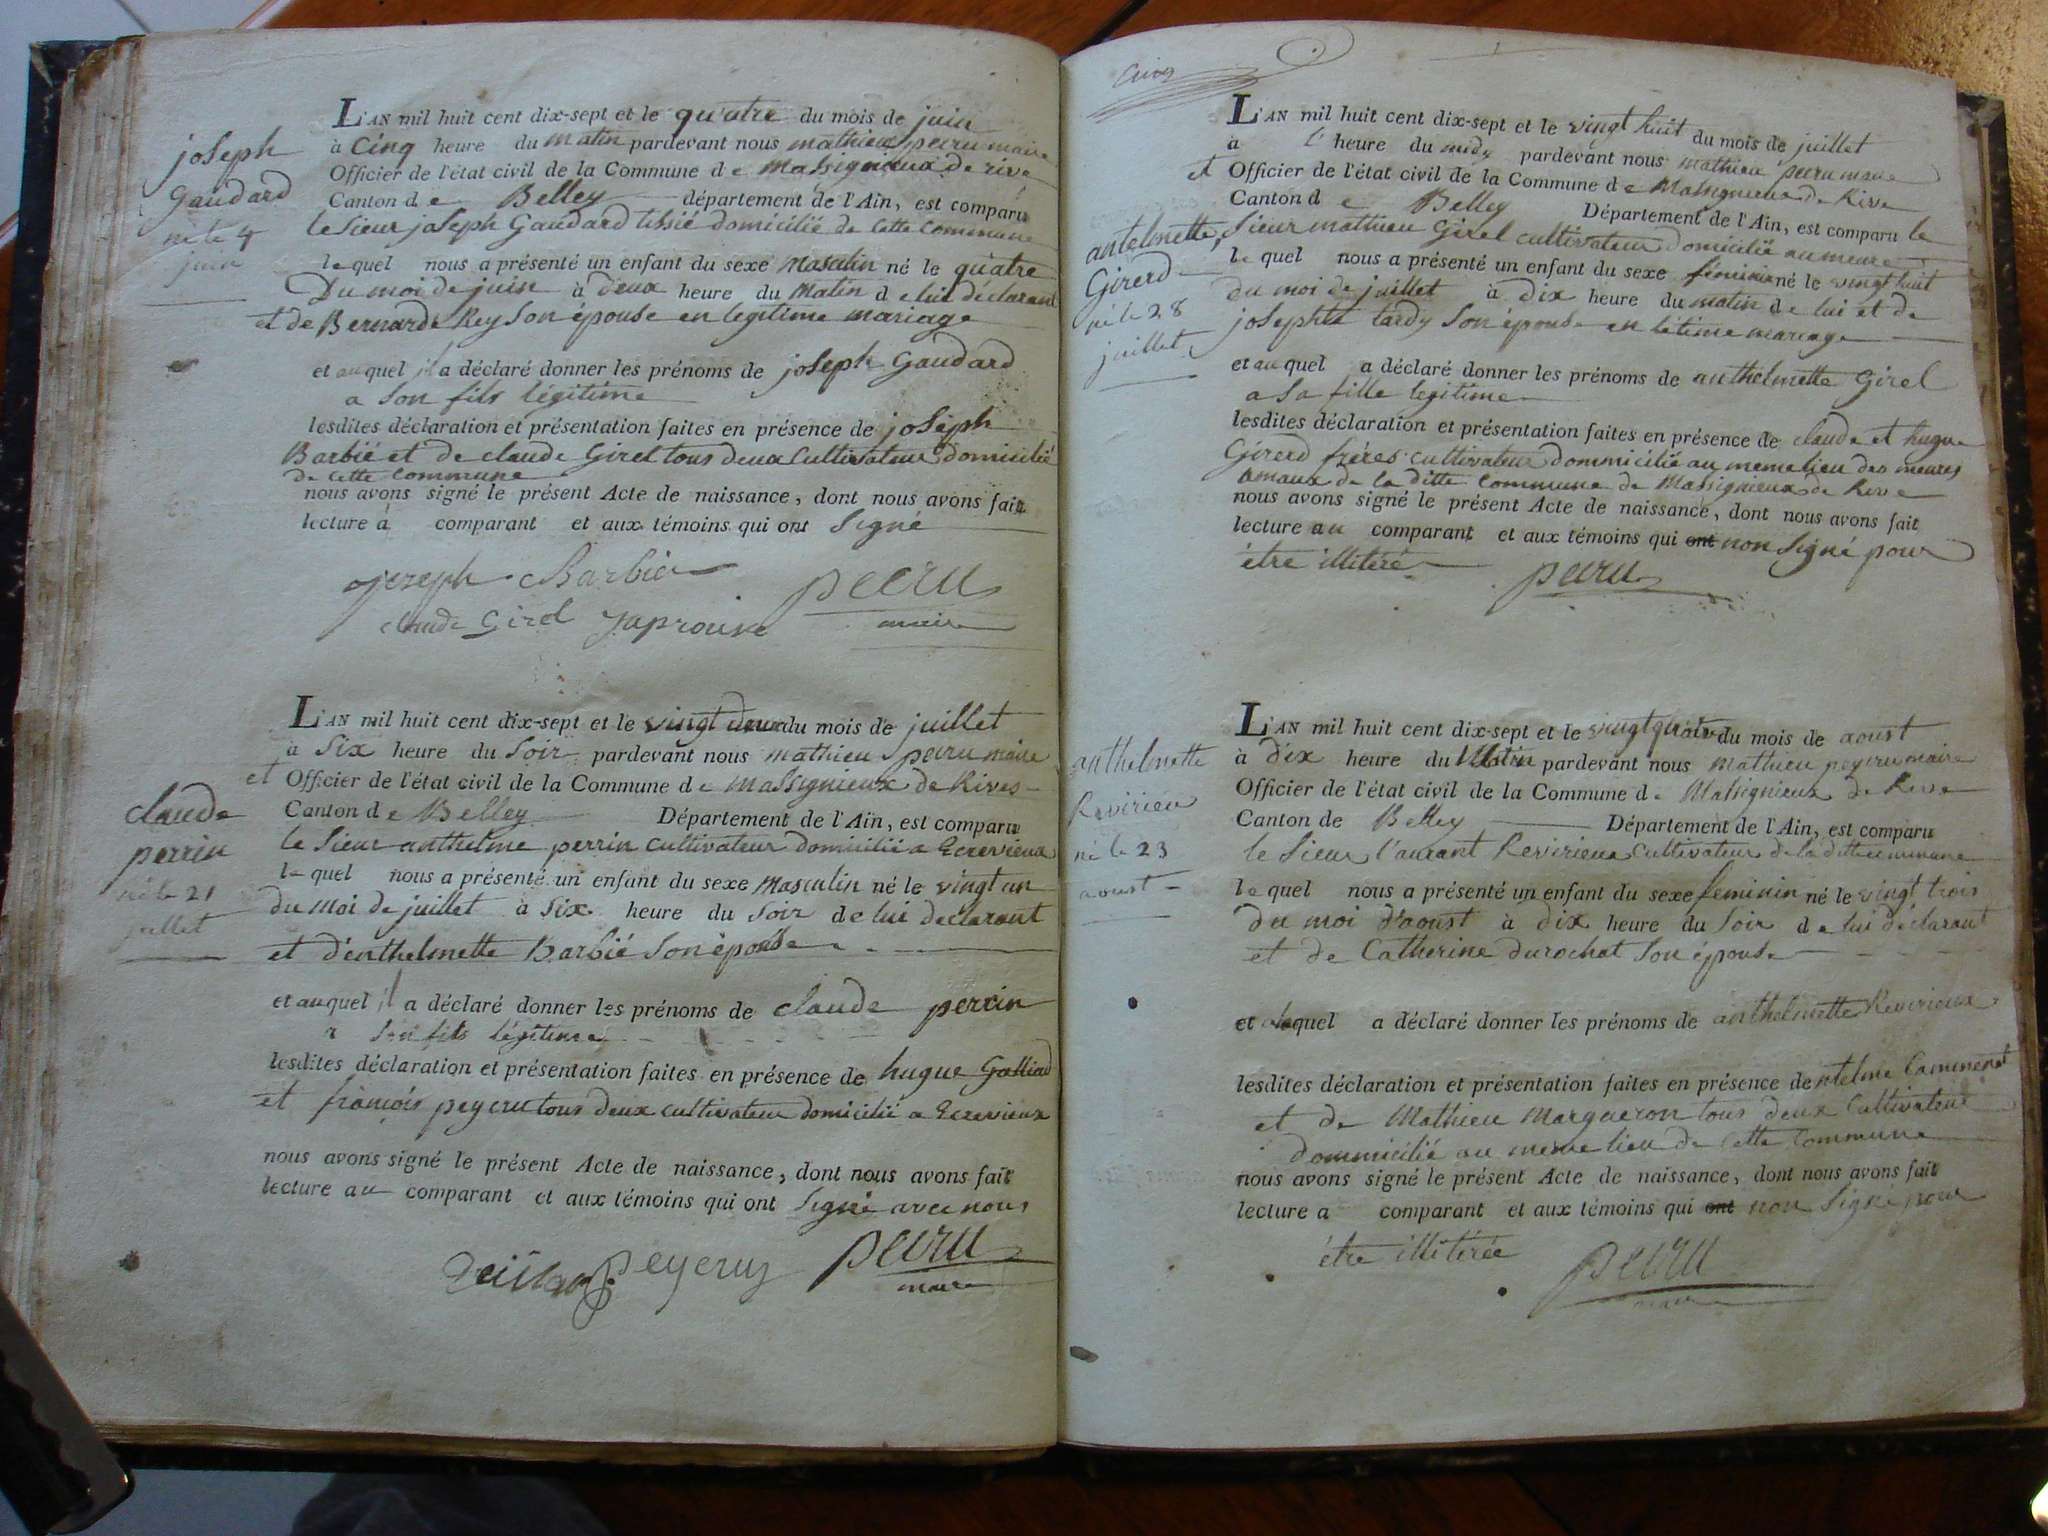 joseph
Gaudard
né le 4
juin
L'AN mil huit cent dix-sept et le quatre du mois de juin
à Cinq heure du matin pardevant nous mathieu peiru maire
Officier de l'état civil de la Commune de Massignieux de rive
Canton de Belley département de l'Ain, est comparu
le Sieur joseph Gaudard tissié domicilié de Cette Commune
lequel nous a présenté un enfant du sexe Masculin né le quatre
Du moi de juin à deux heure du Matin de lui déclarant
et de Bernarde Rey Son épouse en legitime mariage
et auquel il a déclaré donner les prénoms de joseph Gaudard
a Son fils légitime
lesdites déclaration et présentation faites en présence de joseph
Barbié et de claude Girel tous deux Cultivateur domicilié
de Cette Commune
nous avons signé le présent Acte de naissance, dont nous avons fait
lecture à comparant et aux témoins qui ont Signé
joseph Barbier peiru
claude Girel japrouve maire
claude
perrin
né le 21
juillet
L'AN mil huit cent dix-sept et le vingt deux du mois de juillet
à Six heure du Soir pardevant nous mathieu peiru maire
et Officier de l'état civil de la Commune de Massignieux de Rives
Canton de Belley Département de l'Ain, est comparu
le Sieur anthelme perrin cultivateur domicilié a Ecrevieux
lequel nous a présenté un enfant du sexe Masculin né le vingt un
du moi de juillet à Six heure du Soir de lui declarant
et d'enthelmette Barbié Son épouse
et auquel il a déclaré donner les prénoms de claude perrin
a Son fils légitime
lesdites déclaration et présentation faites en présence de hugue Galliad
et françois peyeru tous deux cultivateur domicilié a Ecrevieux
nous avons signé le présent Acte de naissance, dont nous avons fait
lecture au comparant et aux témoins qui ont Signé avec nous
peyeru peiru
maire
antelmette
Girerd
né le 28
juillet
L'AN mil huit cent dix-sept et le vingt huit du mois de juillet
à l' heure du midy pardevant nous mathieu peiru maire
et Officier de l'état civil de la Commune de Massignieux de Rive
Canton de Belley Département de l'Ain, est comparu le
Sieur mathieu Girel cultivateur domicilié au meure
lequel nous a présenté un enfant du sexe féminin né le vingt huit
du moi de juillet à dix heure du matin de lui et de
josephte tardy Son épouse en létime mariage
et auquel a déclaré donner les prénoms de anthelmette Girel
a Sa fille legitime
lesdites déclaration et présentation faites en présence de claude et hugue
Girerd frères cultivateur dommicilié au meme lieu des meures
amaux de la ditte commune de Massignieux de Rive
nous avons signé le présent Acte de naissance, dont nous avons fait
lecture au comparant et aux témoins qui ont non Signé pour
être illitéré
peiru
anthelmette
Revirieu
né le 23
aoust
L'AN mil huit cent dix-sept et le vingt quatre du mois de aoust
à dix heure du Matin pardevant nous Mathieu peyeru maire
Officier de l'état civil de la Commune de Massignieux de Rive
Canton de Belley Département de l'Ain, est comparu
le Sieur l'aurant Revirieux Cultivateur de la ditte commune
lequel nous a présenté un enfant du sexe feminin né le vingt trois
du moi d'aoust à dix heure du Soir de lui déclarant
et de Catherine durochat Son épouse
et alaquel a déclaré donner les prénoms de anthelmette Revirieux
lesdites déclaration et présentation faites en présence de ntelme Cammenet
et de Mathieu Margueron tous deux Cultivateur
dommicilié au meme lieu de Cette Commune
nous avons signé le présent Acte de naissance, dont nous avons fait
lecture a comparant et aux témoins qui ont non Signé pour
être illitérée
peiru
maire